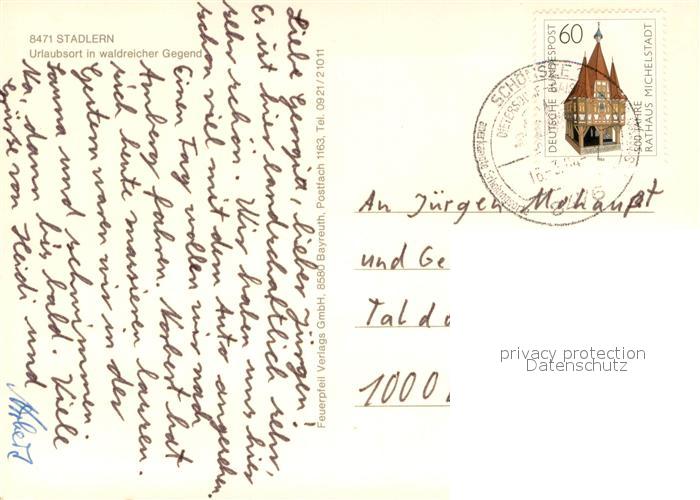 8471 STADLERN
Urlaubsort in waldreicher Gegend
Liebe Georgitt, lieber Jürgen!
Es ist hier landschaftlich sehr,
sehr schön. Wir haben uns hier
schon viel mit dem Auto angesehen.
Einen Tag wollen wir nach
Amberg fahren. Norbert hat
sich heute massieren lassen.
Gestern waren wir in der
Sauna und schwimmen.
Na, dann bis bald. Viele
Grüße von Heidi und
Norbert
Feuerpfeil Verlags GmbH, 8580 Bayreuth, Postfach 1163, Tel. 0921/21011
60
DEUTSCHE BUNDESPOST
500 JAHRE
RATHAUS MICHELSTADT
SCHÖNSEE
An Jürgen Mohaupt
und Ge
Tald
1000
privacy protection
Datenschutz